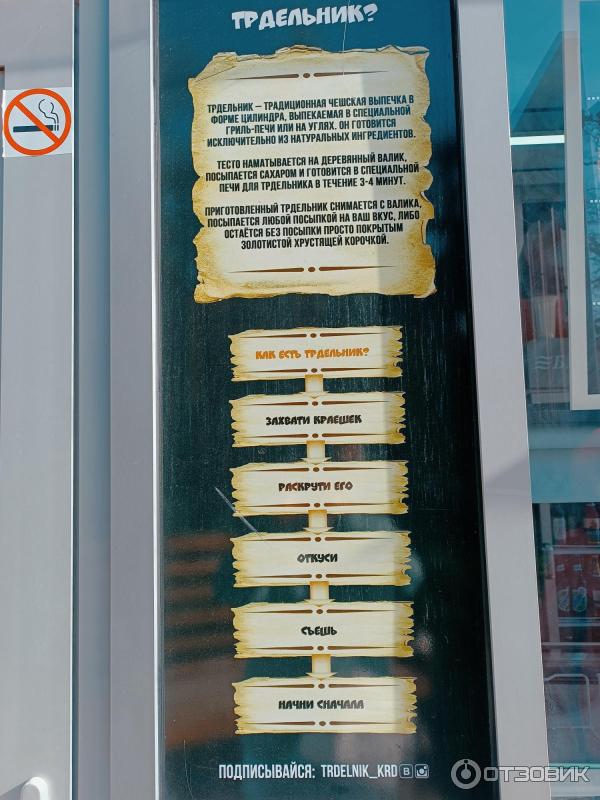 ТРДЕЛЬНИК?
ТРДЕЛЬНИК – ТРАДИЦИОННАЯ ЧЕШСКАЯ ВЫПЕЧКА В
ФОРМЕ ЦИЛИНДРА, ВЫПЕКАЕМАЯ В СПЕЦИАЛЬНОЙ
ГРИЛЬ-ПЕЧИ ИЛИ НА УГЛЯХ. ОН ГОТОВИТСЯ
ИСКЛЮЧИТЕЛЬНО ИЗ НАТУРАЛЬНЫХ ИНГРЕДИЕНТОВ.
ТЕСТО НАМАТЫВАЕТСЯ НА ДЕРЕВЯННЫЙ ВАЛИК,
ПОСЫПАЕТСЯ САХАРОМ И ГОТОВИТСЯ В СПЕЦИАЛЬНОЙ
ПЕЧИ ДЛЯ ТРДЕЛЬНИКА В ТЕЧЕНИЕ 3-4 МИНУТ.
ПРИГОТОВЛЕННЫЙ ТРДЕЛЬНИК СНИМАЕТСЯ С ВАЛИКА,
ПОСЫПАЕТСЯ ЛЮБОЙ ПОСЫПКОЙ НА ВАШ ВКУС, ЛИБО
ОСТАЁТСЯ БЕЗ ПОСЫПКИ ПРОСТО ПОКРЫТЫМ
ЗОЛОТИСТОЙ ХРУСТЯЩЕЙ КОРОЧКОЙ.
КАК ЕСТЬ ТРДЕЛЬНИК?
ЗАХВАТИ КРАЕШЕК
РАСКРУТИ ЕГО
ОТКУСИ
СЪЕШЬ
НАЧНИ СНАЧАЛА
ПОДПИСЫВАЙСЯ: TRDELNIK_KRD
ОТЗОВИК